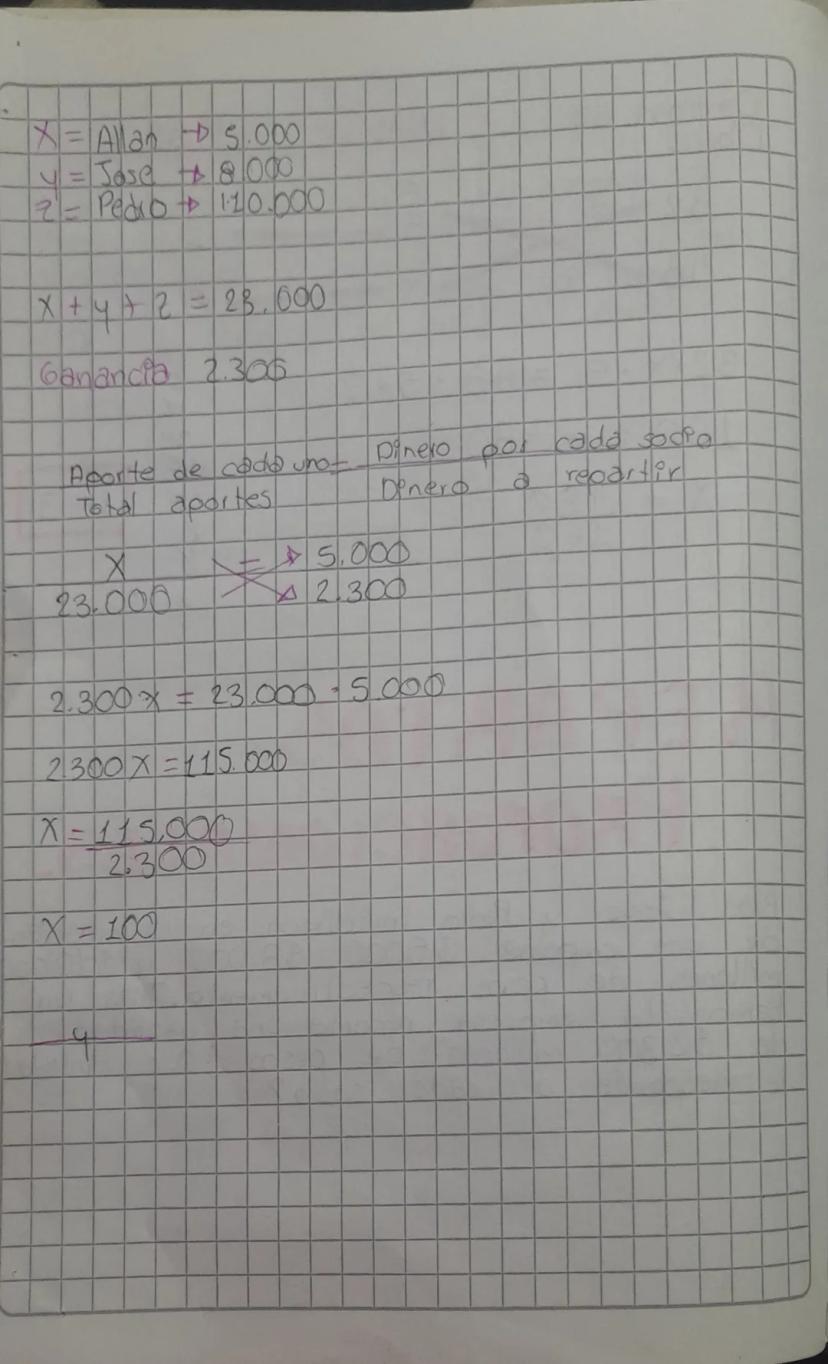 X = Allan → 5.000
y = Jose → 8.000
z = Pedro → 110.000
x + y + z = 23.000
Ganancia 2.306
Aporte de cada uno = Dinero por cada socio
Total aportes Dinero a repartir
X = → 5.000
23.000 2.300
2.300x = 23.000 · 5.000
2300X = 115.000
X = 115.000
2.300
X = 100
y